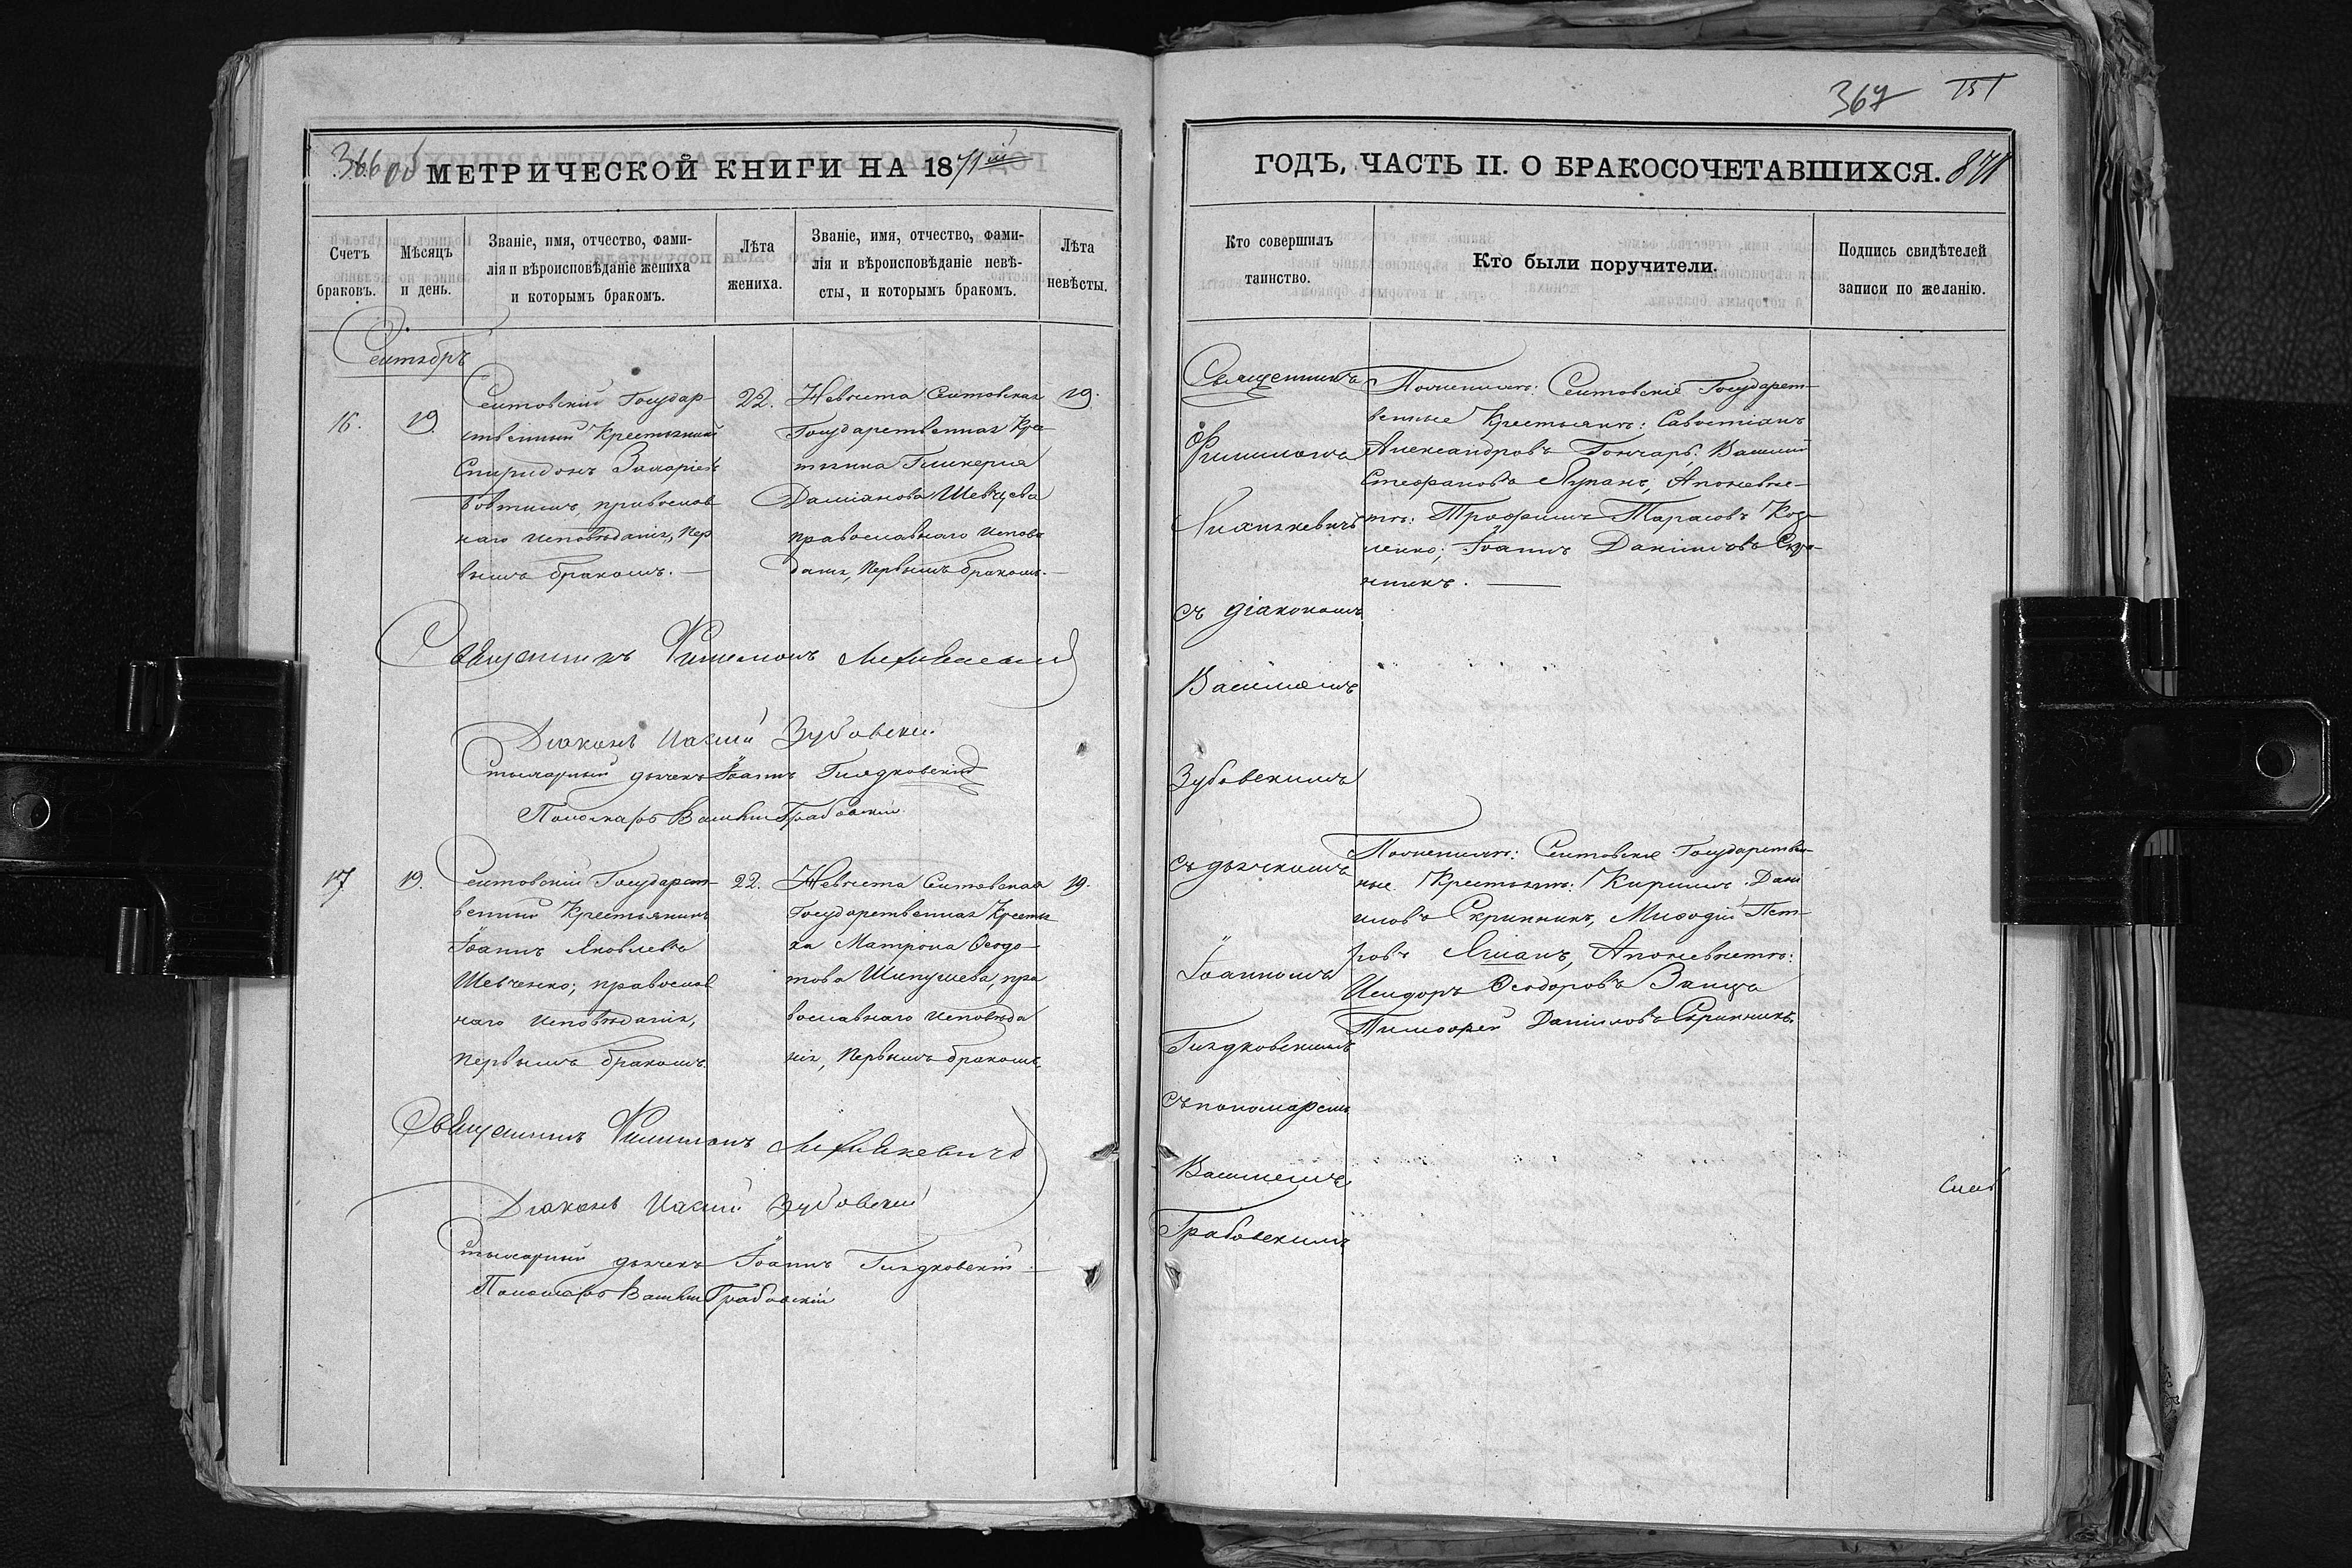 366 об
МЕТРИЧЕСКОЙ КНИГИ НА 1871й
Счетъ браковъ.
Мѣсяцъ и день.
Званіе, имя, отчество, фами-
лія и вѣроисповѣданіе жениха
и которымъ бракомъ.
Лѣта жениха.
Званіе, имя, отчество, фами-
лія и вѣроисповѣданіе невѣ-
сты, и которымъ бракомъ.
Лѣта невѣсты.
Сентябрь
16.
19.
Сентовскій Государ-
ственный Крестьянинъ
Спиридонъ Захаріевъ
Вовтишъ, православ
наго исповѣданія, пер
вымъ бракомъ. —
22.
Невѣста Сентовская
Государственная Крес
тьянка Гликерія
Даміанова Шевцева
православнаго исповѣ
данія, первымъ бракомъ. —
19.
Священникъ Филимонъ
Діаконъ Зубовскій
дьячекъ Іоаннъ Гиздковскій
Пономарь Василій Грабовскій
17
19.
Сентовскій Государст-
венный Крестьянинъ
Іоаннъ Яковлевъ
Шевченко; православ
наго исповѣданія,
первымъ бракомъ.
22.
Невѣста Сентовская
Государственная Крестьян
ка Матрона Ѳеодо-
това Шипулева, пра
вославнаго исповѣда
нія, первымъ бракомъ.
19.
Священникъ Филимонъ Лихнякевичъ
Діаконъ Зубовскій
дьячекъ Іоаннъ Гиздковскій
Пономарь Василій Грабовскій
367
151
ГОДЪ, ЧАСТЬ II. О БРАКОСОЧЕТАВШИХСЯ. 871
Кто совершилъ таинство.
Кто были поручители.
Подпись свидѣтелей
записи по желанію.
Священникъ
Филимонъ
Лихнякевичъ
съ діакономъ
Василіемъ
Зубовскимъ
съ дьячкомъ
Іоанномъ
Гиздковскимъ
съ пономаремъ
Василіемъ
Грабовскимъ
По женихѣ: Сентовскіе Государст-
венные Крестьяне: Савостіанъ
Александровъ Гончаръ, Василій
Стефановъ Лупанъ, А по невѣс-
тѣ: Трофимъ Тарасовъ
Іоаннъ Даніиловъ
По женихѣ: Сентовскіе Государствен-
ные Крестьяне: Кириллъ Дани
иловъ Скрипникъ, Мифодій Пет-
ровъ А по невѣстѣ:
Исидоръ Ѳеодоровъ Заица
Тимофей Даніиловъ Скрипникъ.